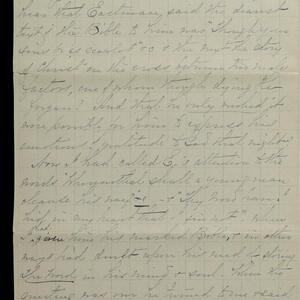 hear that Eastman, said the dearest
text of the Bible to him was "though your
sins be as scarlet" &c & the next the story
of Christ on the cross between two male-
factors, one of whom though dying He
forgave! And that he only wished it
were possible for him to express his
emotions of gratitude to God that night
Now I had called E's attention to the
words "Wherewithal shall a young man
cleanse his way" - & "Thy Word have I
hid in my heart that I sin not" when
I gave him his marked Bible, & in other
ways had dwelt upon this need & storing
The Word in his mind & soul. When the
meeting was over he turned to me & said